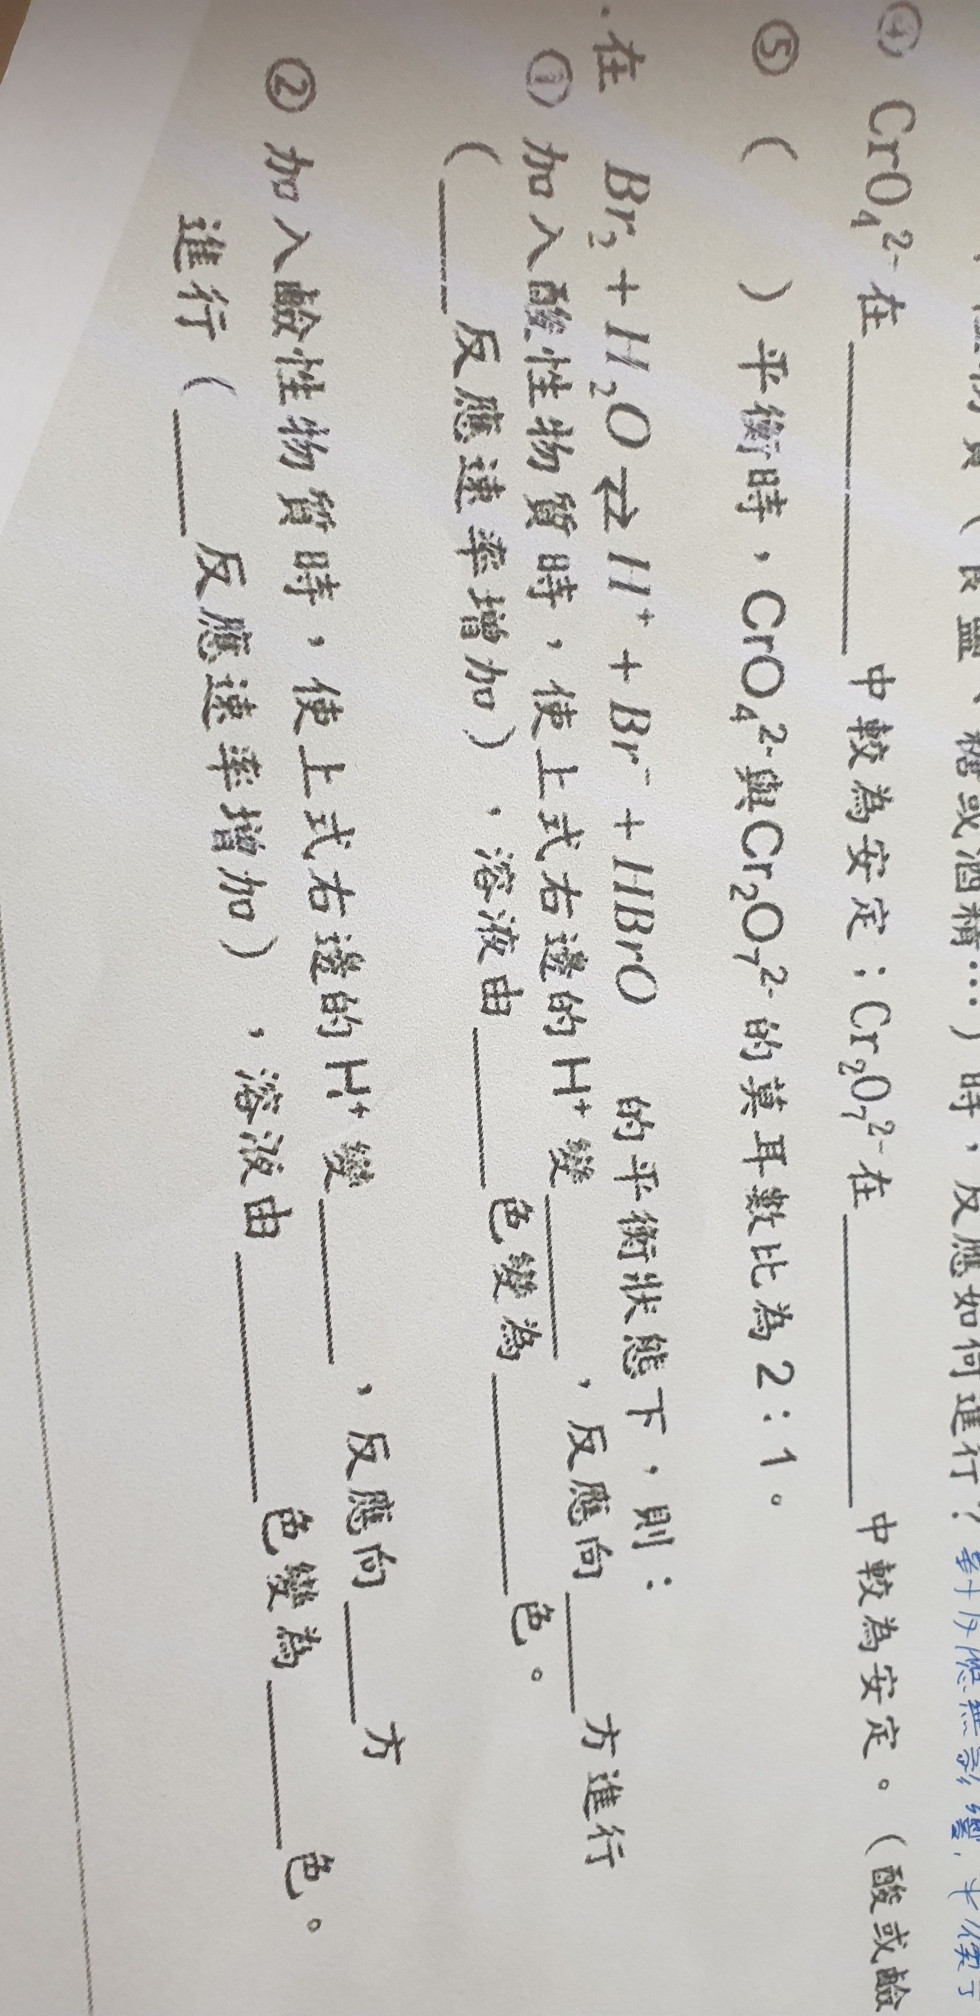 糖或酒精…）時，反應如何進行？對反應無影響，
④ CrO₄²⁻在＿＿＿＿中較為安定；Cr₂O₇²⁻在＿＿＿＿中較為安定。（酸或鹼
⑤（　　）平衡時，CrO₄²⁻與Cr₂O₇²⁻的莫耳數比為2：1。
．在 Br₂ + H₂O ⇌ H⁺ + Br⁻ + HBrO 的平衡狀態下，則：
① 加入酸性物質時，使上式右邊的H⁺變＿＿＿＿，反應向＿＿＿方進行
（＿＿＿反應速率增加），溶液由＿＿＿＿色變為＿＿＿＿色。
② 加入鹼性物質時，使上式右邊的H⁺變＿＿＿＿，反應向＿＿＿方
進行（＿＿＿反應速率增加），溶液由＿＿＿＿色變為＿＿＿＿色。